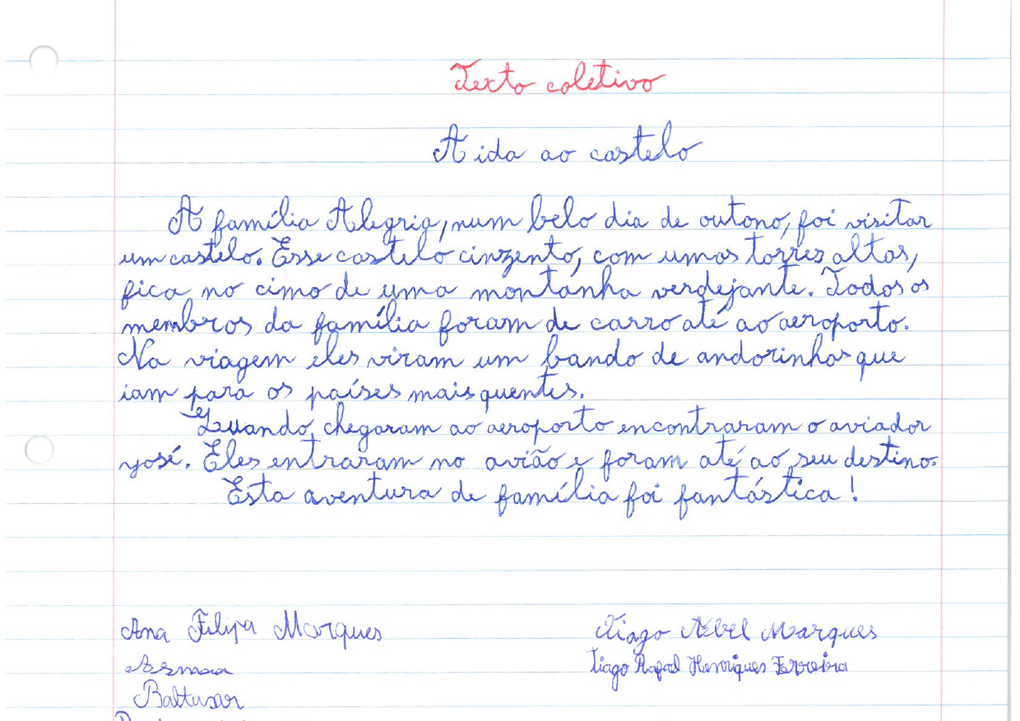 Texto coletivo
A ida ao castelo
A família Alegria, num belo dia de outono, foi visitar
um castelo. Esse castelo cinzento, com umas torres altas,
fica no cimo de uma montanha verdejante. Todos os
membros da família foram de carro até ao aeroporto.
Na viagem eles viram um bando de andorinhas que
iam para os países mais quentes.
Quando chegaram ao aeroporto encontraram o aviador
José. Eles entraram no avião e foram até ao seu destino.
Esta aventura de família foi fantástica!
Ana Filipa Marques
Tiago Abel Marques
Tiago Rafael Henriques Ferreira
Baltasar